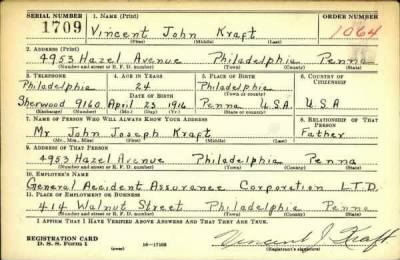 SERIAL NUMBER 1. NAME (Print) ORDER NUMBER
1709 Vincent John Kraft 1064
(First) (Middle) (Last)
2. ADDRESS (Print)
4953 Hazel Avenue Philadelphia Penna
(Number and street or R. F. D. number) (Town) (County) (State)
3. TELEPHONE 4. AGE IN YEARS 5. PLACE OF BIRTH 6. COUNTRY OF CITIZENSHIP
Philadelphia 24 Philadelphia
DATE OF BIRTH (Town or county)
Sherwood 9160 April 23 1916 Penna U.S.A. U.S.A
(Exchange) (Number) (Mo.) (Day) (Yr.) (State or country)
7. NAME OF PERSON WHO WILL ALWAYS KNOW YOUR ADDRESS 8. RELATIONSHIP OF THAT PERSON
Mr John Joseph Kraft Father
(Mr., Mrs., Miss) (First) (Middle) (Last)
9. ADDRESS OF THAT PERSON
4953 Hazel Avenue Philadelphia Penna
(Number and street or R. F. D. number) (Town) (County) (State)
10. EMPLOYER'S NAME
General Accident Assurance Corporation LTD.
11. PLACE OF EMPLOYMENT OR BUSINESS
414 Walnut Street Philadelphia Penna
(Number and street or R. F. D. number) (Town) (County) (State)
I AFFIRM THAT I HAVE VERIFIED ABOVE ANSWERS AND THAT THEY ARE TRUE.
REGISTRATION CARD
D. S. S. Form 1 16—17105 Vincent J. Kraft
(Registrant's signature)